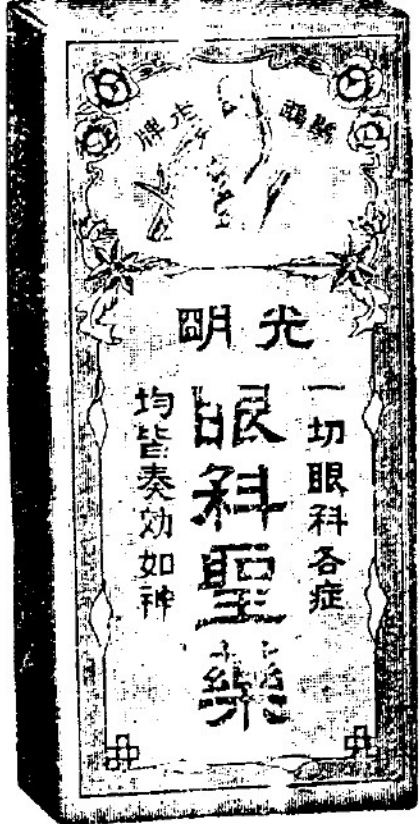 牌
光明
一切眼科各症
眼科聖藥
均皆奏効如神